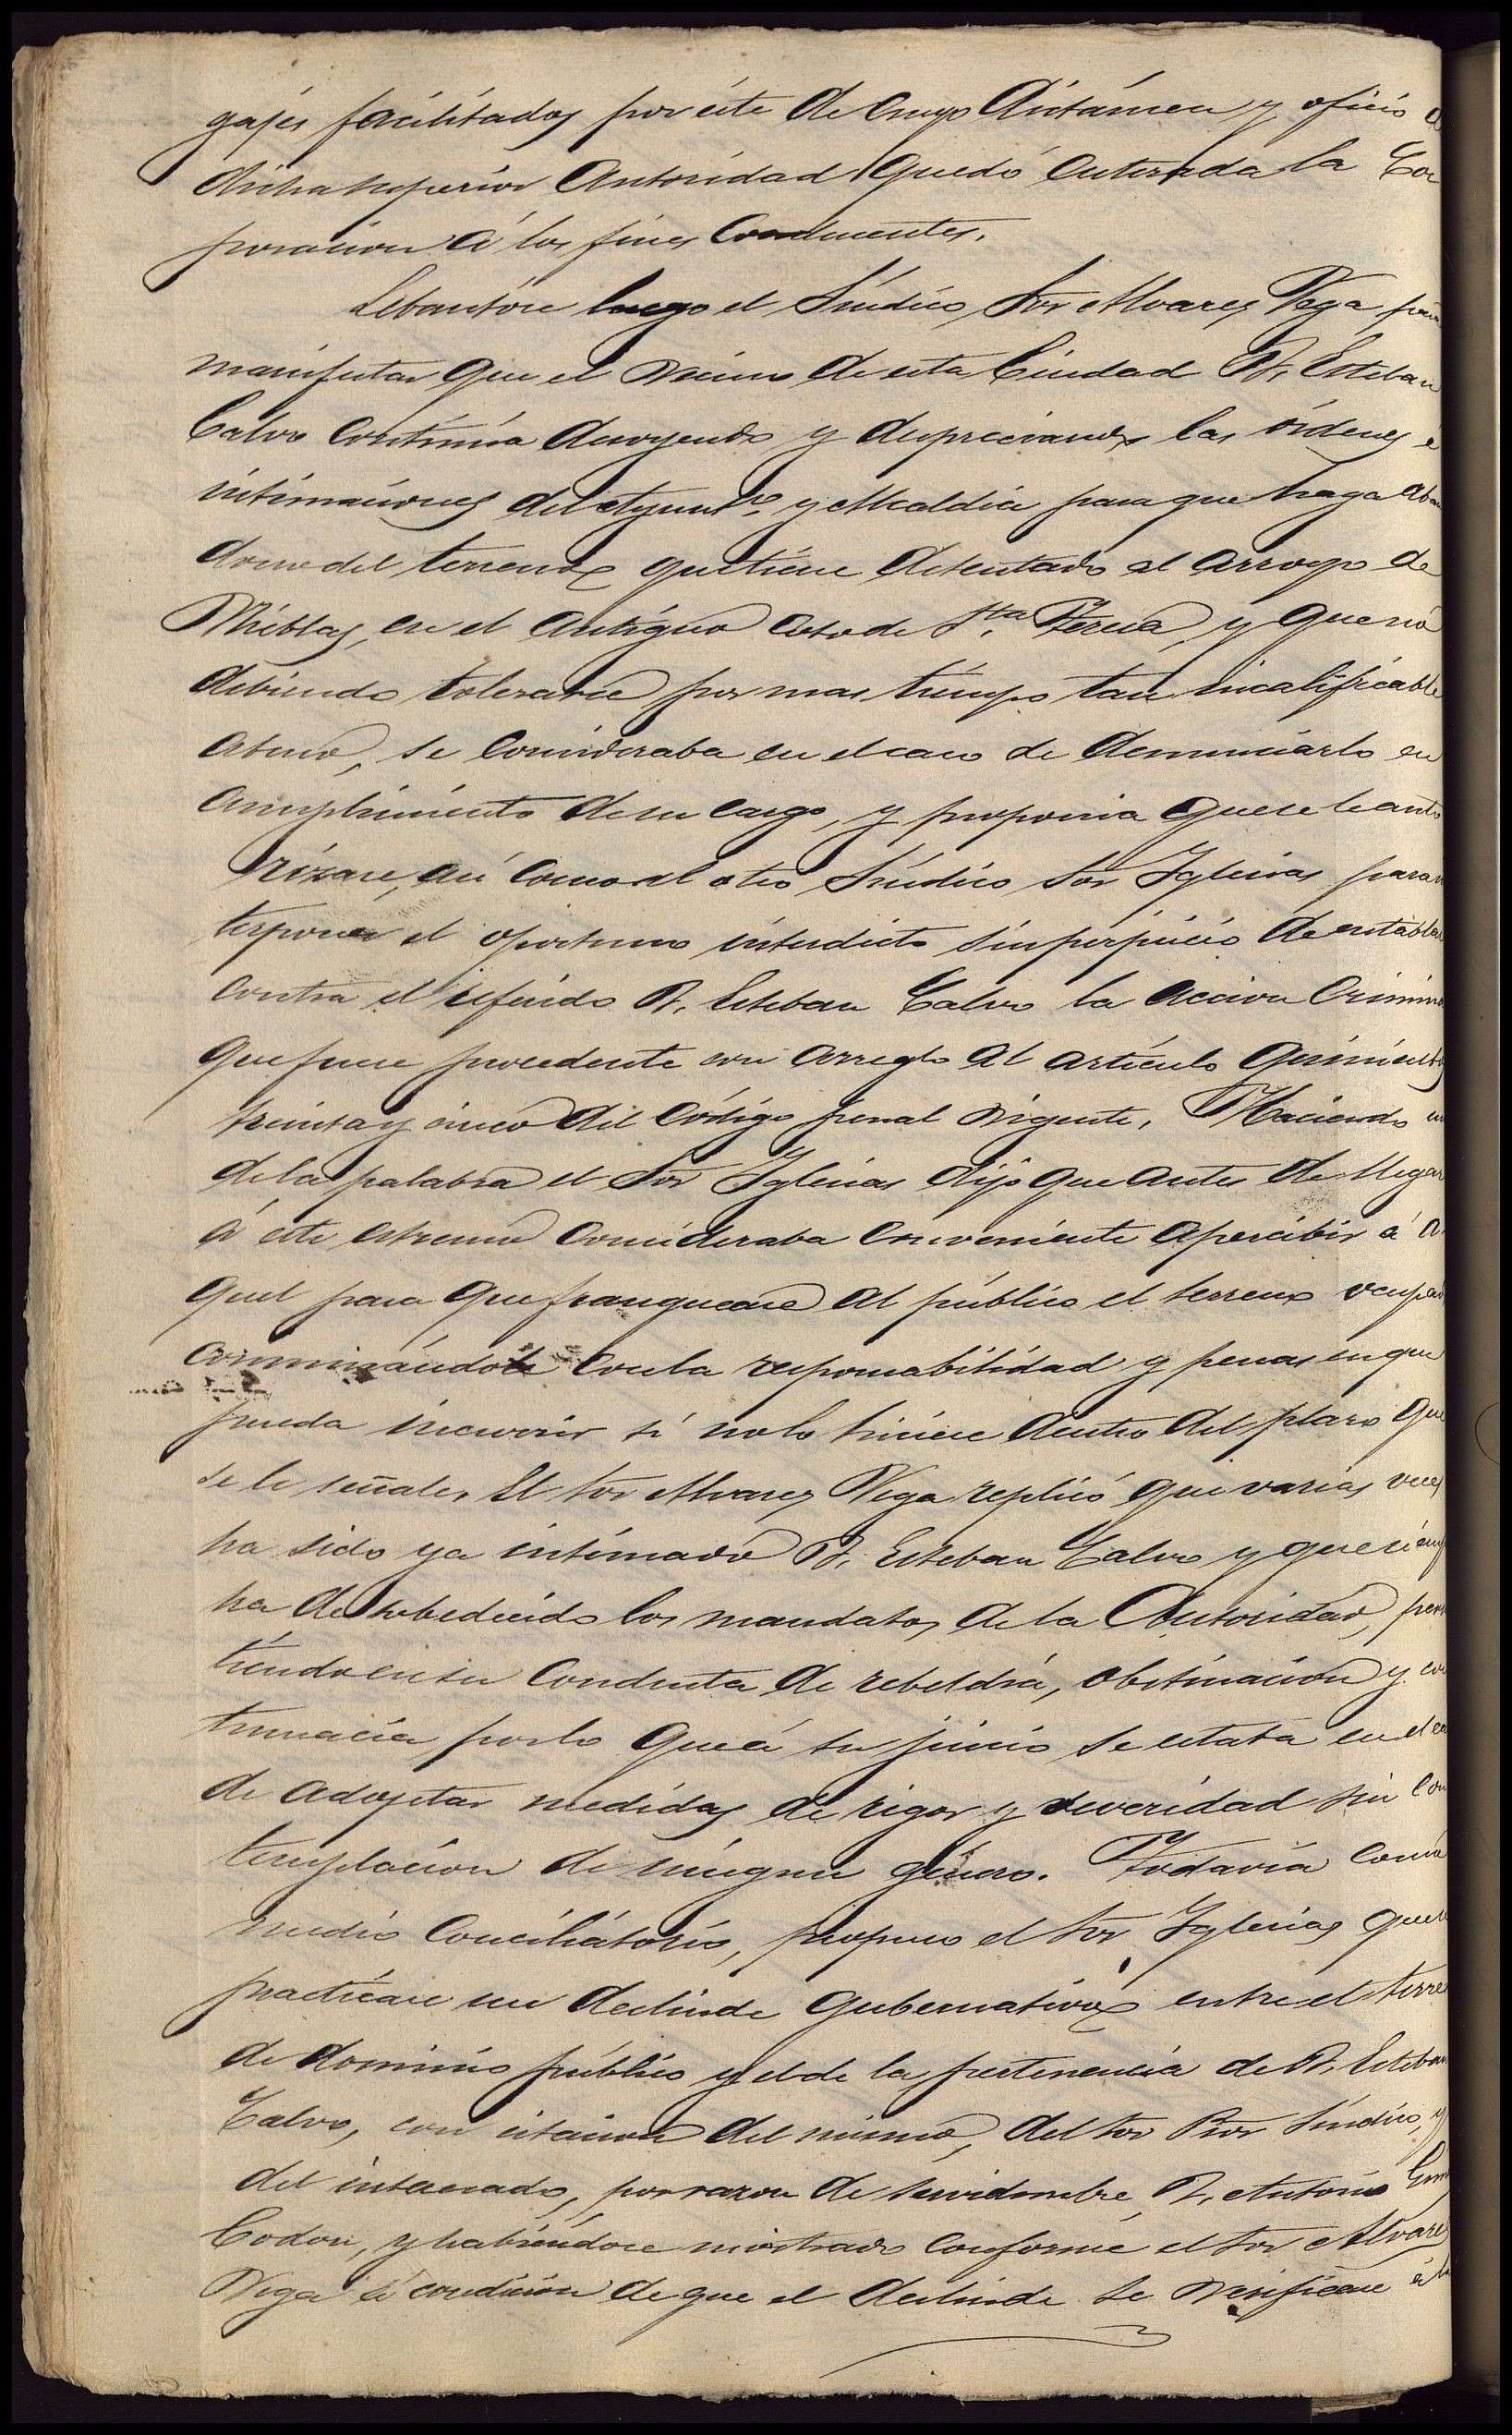 gajes facilitados por éste de cuyo dictámen y oficio d
dicha superior Autoridad quedó enterada la Cor
poracion á los fines conducentes.
Lebantóse luego el Síndico Sor Alvarez Vega para
manifestar que el vecino de esta Ciudad D. Esteban
Calvo continúa desoyendo y despreciando las órdenes e
intimaciones del Ayuntº y Alcaldía para que haga aban
dono del terreno que tiene detentado al arroyo de
Mieblas, en el antiguo coto de Sta Teresa y que nó
debiendo tolerarse por mas tiempo tan incalificable
abuso, se consideraba en el caso de denunciarlo en
cumplimiento de su cargo, y proponia que se le auto
rizase, así como al otro Síndico Sor Iglesias para in
terponer el oportuno interdicto sin perjuicio de entablar
contra el referido D. Esteban Calvo la accion criminal
que fuese procedente con arreglo al artículo quinientos
treinta y cinco del Código penal vigente. Haciendo uso
de la palabra el Sor Iglesias dijo que antes de llegar
á este estremo consideraba conveniente apercibir á a
quel para que franquease al público el terreno ocupado
conminándole con la responsabilidad y penas en que
pueda incurrir si no lo hiciese dentro del plazo que
se le señale. El Sor Alvarez Vega replicó que varias veces
ha sido ya intimado D. Esteban Calvo y que siempre
ha desobedecido los mandatos de la Autoridad, persis
tiendo en su conducta de rebeldía, obstinacion y con
tumacia por lo que á su juicio se estaba en el caso
de adoptar medidas de rigor y severidad sin con
templacion de ningun género. Todavía como
medio conciliatorio, propuso el Sor Iglesias que se
practicase un deslinde gubernativo entre el terreno
de dominio público y el de la pertenencia de D. Esteban
Calvo, con citacion del mismo, del Sor Pror Síndico, y
del interesado, por razon de servidumbre D. Antonio
Codon, y habiéndose mostrado conforme el Sor Alvarez
Vega á condicion de que el deslinde se verificase á la